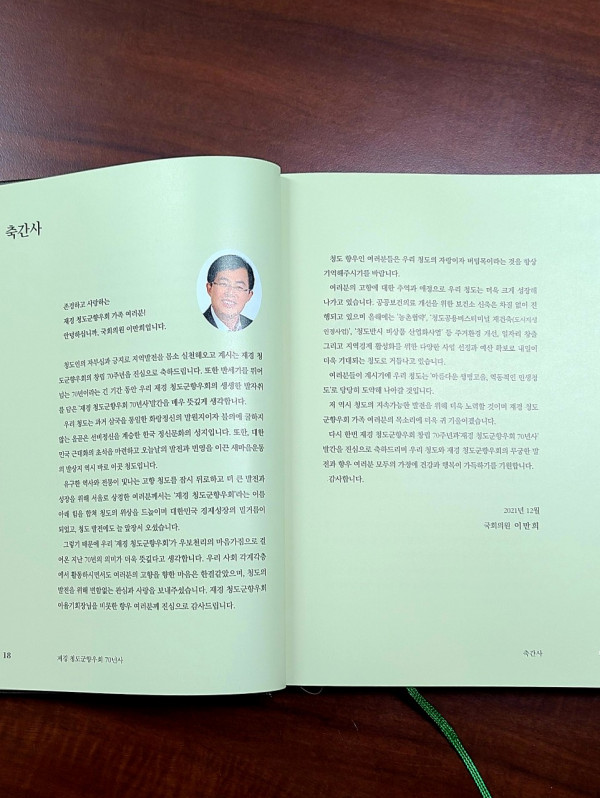 축간사
존경하고 사랑하는
재경 청도군향우회 가족 여러분!
안녕하십니까, 국회의원 이만희입니다.
청도인의 자부심과 긍지로 지역발전을 몸소 실천해오고 계시는 재경 청
도군향우회의 창립 70주년을 진심으로 축하드립니다. 또한 반세기를 뛰어
넘는 70년이라는 긴 기간 동안 우리 재경 청도군향우회의 생생한 발자취
를 담은 '재경 청도군향우회 70년사'발간을 매우 뜻깊게 생각합니다.
우리 청도는 과거 삼국을 통일한 화랑정신의 발원지이자 불의에 굴하지
않는 올곧은 선비정신을 계승한 한국 정신문화의 성지입니다. 또한, 대한
민국 근대화의 초석을 마련하고 오늘날의 발전과 번영을 이끈 새마을운동
의 발상지 역시 바로 이곳 청도입니다.
유구한 역사와 전통이 빛나는 고향 청도를 잠시 뒤로하고 더 큰 발전과
성장을 위해 서울로 상경한 여러분께서는 '재경 청도군향우회'라는 이름
아래 힘을 합쳐 청도의 위상을 드높이며 대한민국 경제성장의 밑거름이
되었고, 청도 발전에도 늘 앞장서 오셨습니다.
그렇기 때문에 우리 '재경 청도군향우회'가 우보천리의 마음가짐으로 걸
어온 지난 70년의 의미가 더욱 뜻깊다고 생각합니다. 우리 사회 각계각층
에서 활동하시면서도 여러분의 고향을 향한 마음은 한결같았으며, 청도의
발전을 위해 변함없는 관심과 사랑을 보내주셨습니다. 재경 청도군향우회
이율기회장님을 비롯한 향우 여러분께 진심으로 감사드립니다.
18
재경 청도군향우회 70년사
청도 향우인 여러분들은 우리 청도의 자랑이자 버팀목이라는 것을 항상
기억해주시기를 바랍니다.
여러분의 고향에 대한 추억과 애정으로 우리 청도는 더욱 크게 성장해
나가고 있습니다. 공공보건의료 개선을 위한 보건소 신축은 차질 없이 진
행되고 있으며 올해에는 '농촌협약', '청도공용버스터미널 재건축(도시재생
인정사업)', '청도반시 비상품 산업화사업' 등 주거환경 개선, 일자리 창출
그리고 지역경제 활성화를 위한 다양한 사업 선정과 예산 확보로 내일이
더욱 기대되는 청도로 거듭나고 있습니다.
여러분들이 계시기에 우리 청도는 '아름다운 생명고을, 역동적인 민생청
도'로 당당히 도약해 나아갈 것입니다.
저 역시 청도의 지속가능한 발전을 위해 더욱 노력할 것이며 재경 청도
군향우회 가족 여러분의 목소리에 더욱 귀 기울이겠습니다.
다시 한번 재경 청도군향우회 창립 70주년과'재경 청도군향우회 70년사'
발간을 진심으로 축하드리며 우리 청도와 재경 청도군향우회의 무궁한 발
전과 향우 여러분 모두의 가정에 건강과 행복이 가득하기를 기원합니다.
감사합니다.
2021년 12월
국회의원 이 만 희
축간사